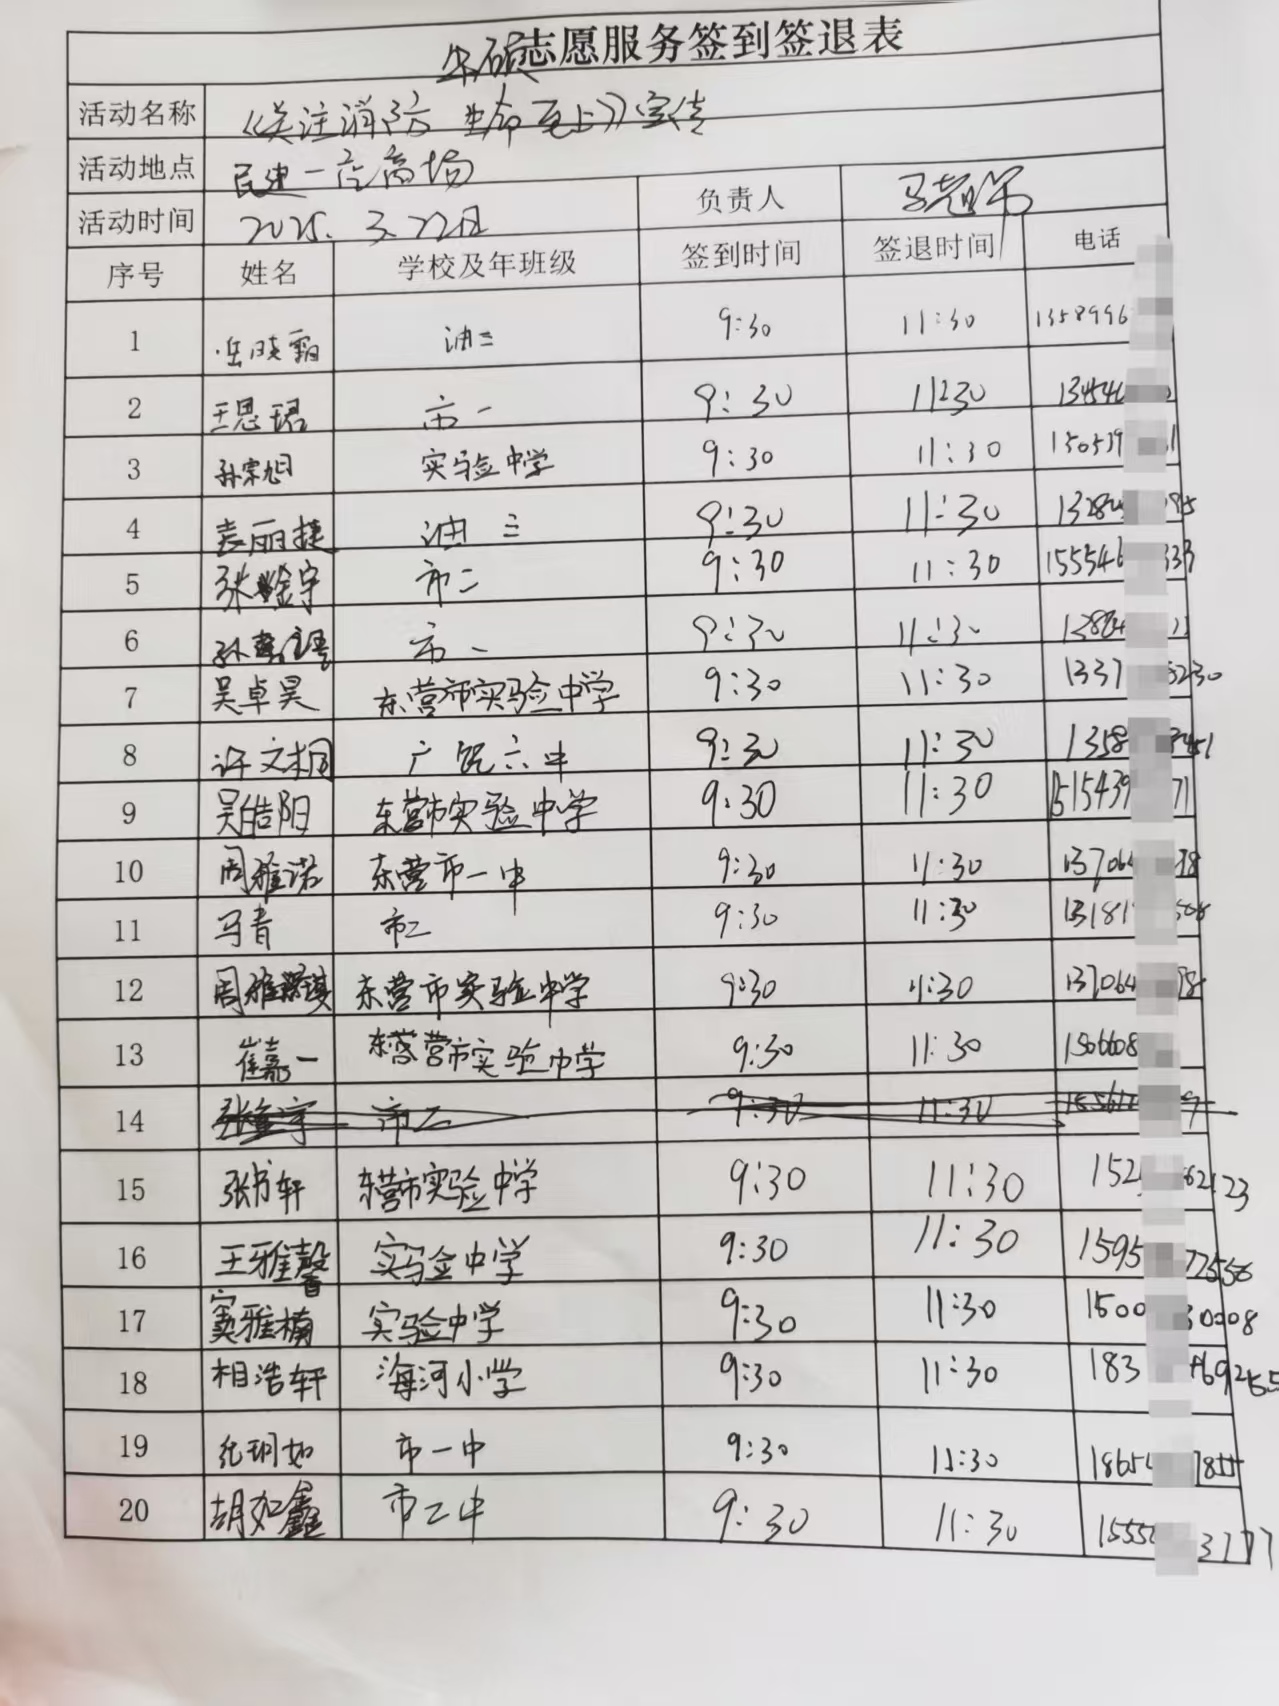 志愿服务签到签退表
活动名称 《关注消防 生命至上》宣传
活动地点 民建一高商场
活动时间 2025. 3.22日 负责人 马老师
序号 姓名 学校及年班级 签到时间 签退时间 电话
1 油三 9:30 11:30 1358996
2 王思珺 市一 9:30 11:30 13454
3 孙宗旭 实验中学 9:30 11:30 150539
4 袁丽捷 油三 9:30 11:30
5 市二 9:30 11:30 155546 333
6 市一 9:30 11:30
7 吴卓昊 东营市实验中学 9:30 11:30 1337 5230
8 许文桐 广饶六中 9:30 11:30 1358
9 吴皓阳 东营市实验中学 9:30 11:30 515439 71
10 周雅诺 东营市一中 9:30 11:30 13706 38
11 马青 市二 9:30 11:30 13181
12 东营市实验中学 9:30 11:30 137064
13 崔嘉一 营市实验中学 9:30 11:30 1506608
14 市二 9:30 11:30
15 张书轩 东营市实验中学 9:30 11:30 152 62123
16 王雅馨 实验中学 9:30 11:30 1595 72556
17 窦雅楠 实验中学 9:30 11:30 1500 30008
18 相浩轩 海河小学 9:30 11:30 183
19 市一中 9:30 11:30 1865
20 胡如鑫 市二中 9:30 11:30 1555 3777